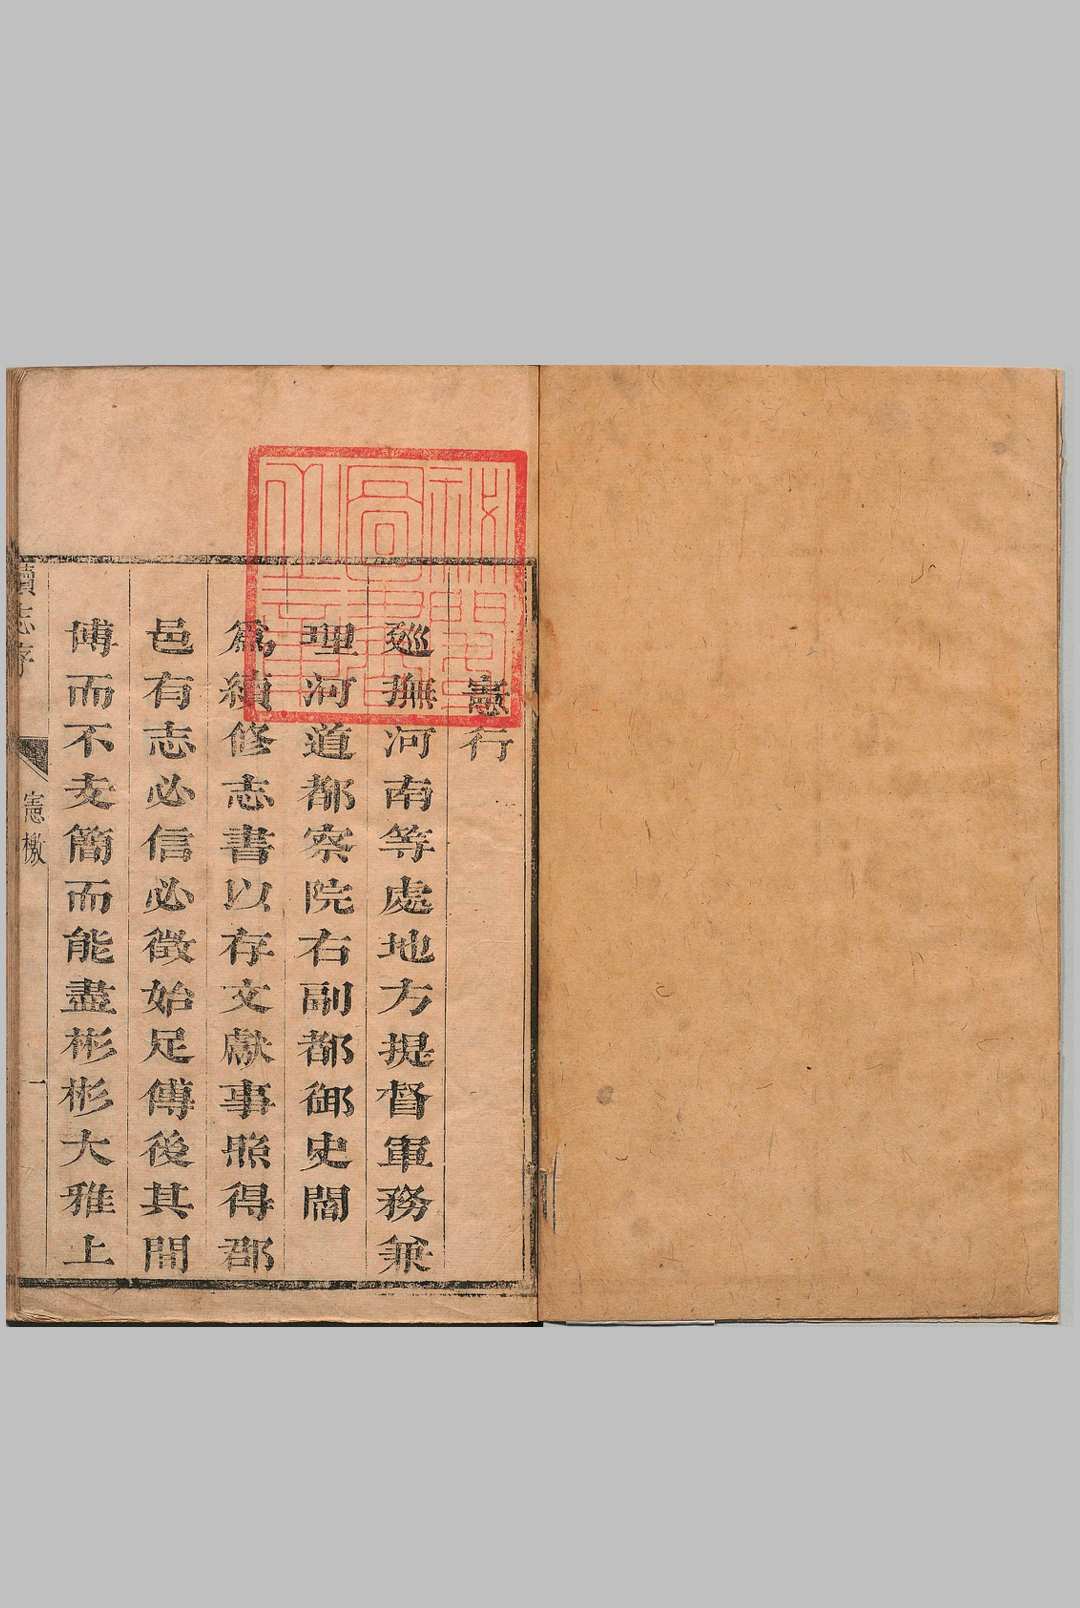 憲行
廵撫河南等處地方提督軍務兼
理河道都察院右副都御史閻
爲續修志書以存文獻事照得郡
邑有志必信必徵始足傳後其間
博而不支簡而能盡彬彬大雅上
續志序
憲檄
一